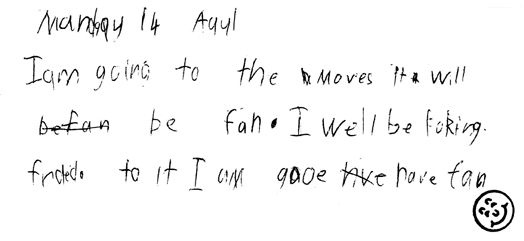 Manday 14 Aqyl
I am going to the Moves it will
befan be fan. I well be taking.
frded. to it I am gooe hve have fan